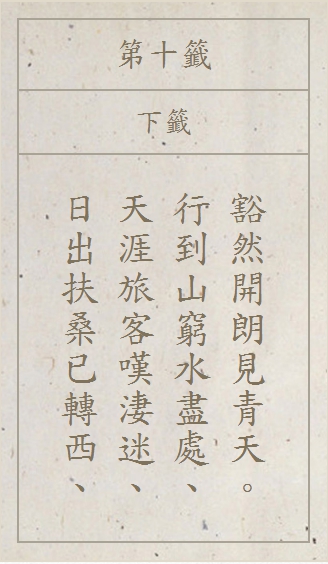 第十籤
下籤
日出扶桑已轉西、
天涯旅客嘆淒迷、
行到山窮水盡處、
豁然開朗見青天。